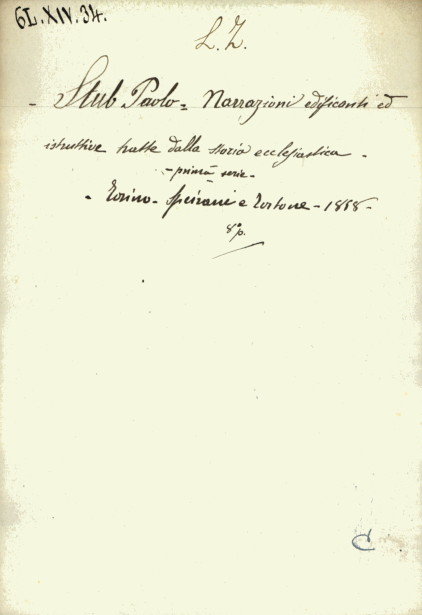 6L.XIV.34.
L. Z.
- Stub Paolo = Narrazioni edificanti ed
istruttive tratte dalla storia ecclesiastica -
- prima serie -
- Torino - Speirani e Tortone - 1868 -
8º p.
C